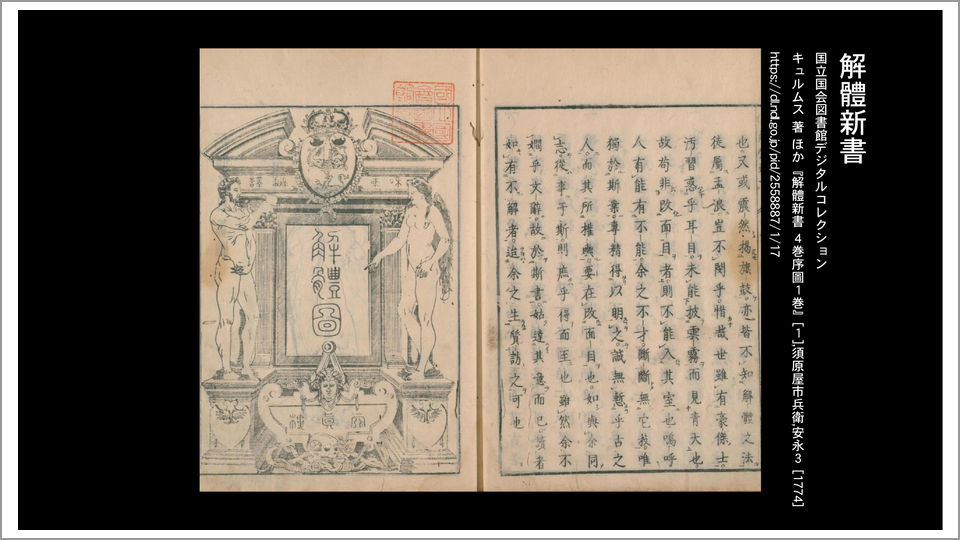 解體新書
国立国会図書館デジタルコレクション
キュルムス 著 ほか『解體新書 4巻序圖1巻』[1],須原屋市兵衛,安永3 [1774]
https://dl.ndl.go.jp/pid/2558887/1/17
也又或震然揚旗鼓亦皆不知解體之法
徒屬孟浪豈不閔乎惜哉世雖有豪傑士
汚習惑乎耳目未能披雲霧而見青天也
故苟非改面目者則不能入其室也嗚呼
人有能有不能余之不才斷斷無它技唯
獨於斯業專精得以明之誠無慙乎古之
人而其所權輿要在改面目也如與余同
志從事于斯則庶乎得而至也雖然余不
嫺乎文辭故於斯書姑達其意而已讀者
如有不解者追余之生賛訪之可也
解體圖